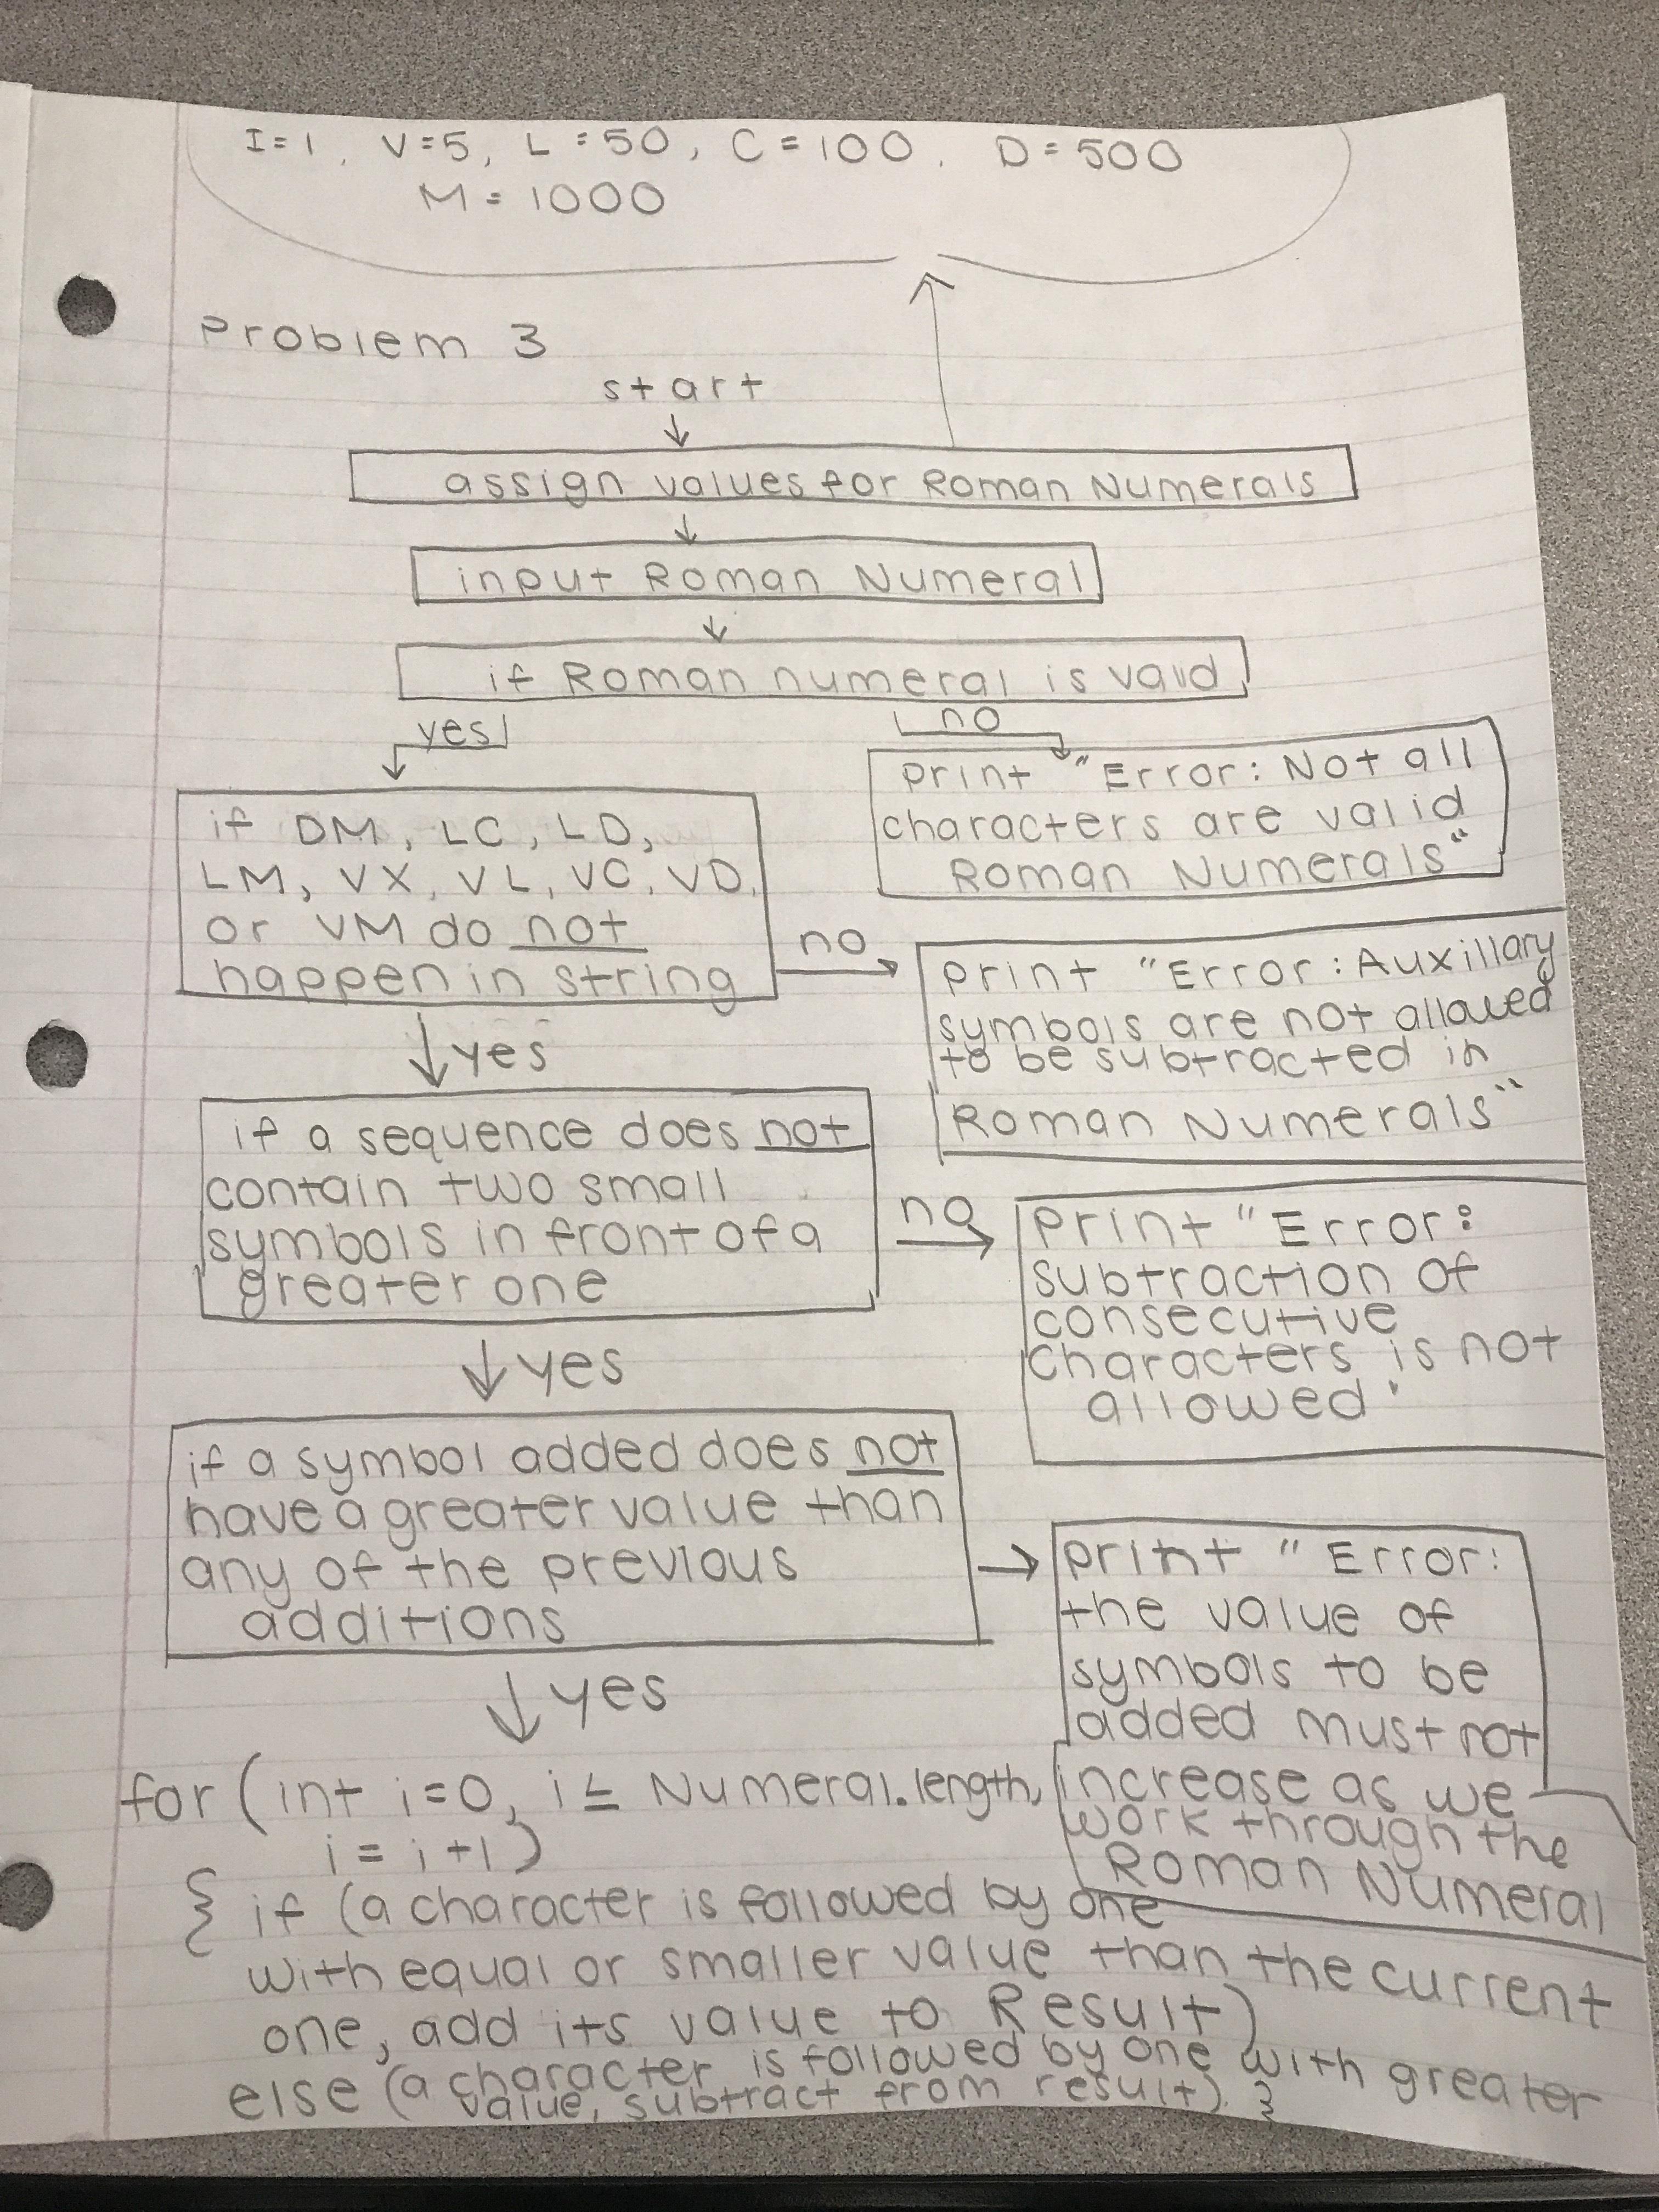 I=1, V=5, L=50, C=100, D=500
M=1000
Problem 3
start
assign values for Roman Numerals
input Roman Numeral
if Roman numeral is valid
yes
no
print "Error: Not all
characters are valid
Roman Numerals"
if DM, LC, LD,
LM, VX, VL, VC, VD,
or VM do not
happen in string
no
print "Error: Auxillary
symbols are not allowed
to be subtracted in
Roman Numerals"
yes
if a sequence does not
contain two small
symbols in front of a
greater one
no
print "Error:
Subtraction of
consecutive
characters is not
allowed.
yes
if a symbol added does not
have a greater value than
any of the previous
additions
print "Error:
the value of
symbols to be
added must not
increase as we
work through the
Roman Numeral
yes
for (int i=0, i ≤ Numeral.length,
i=i+1)
{ if (a character is followed by one
with equal or smaller value than the current
one, add its value to Result)
else (a character is followed by one with greater
value, subtract from result) }